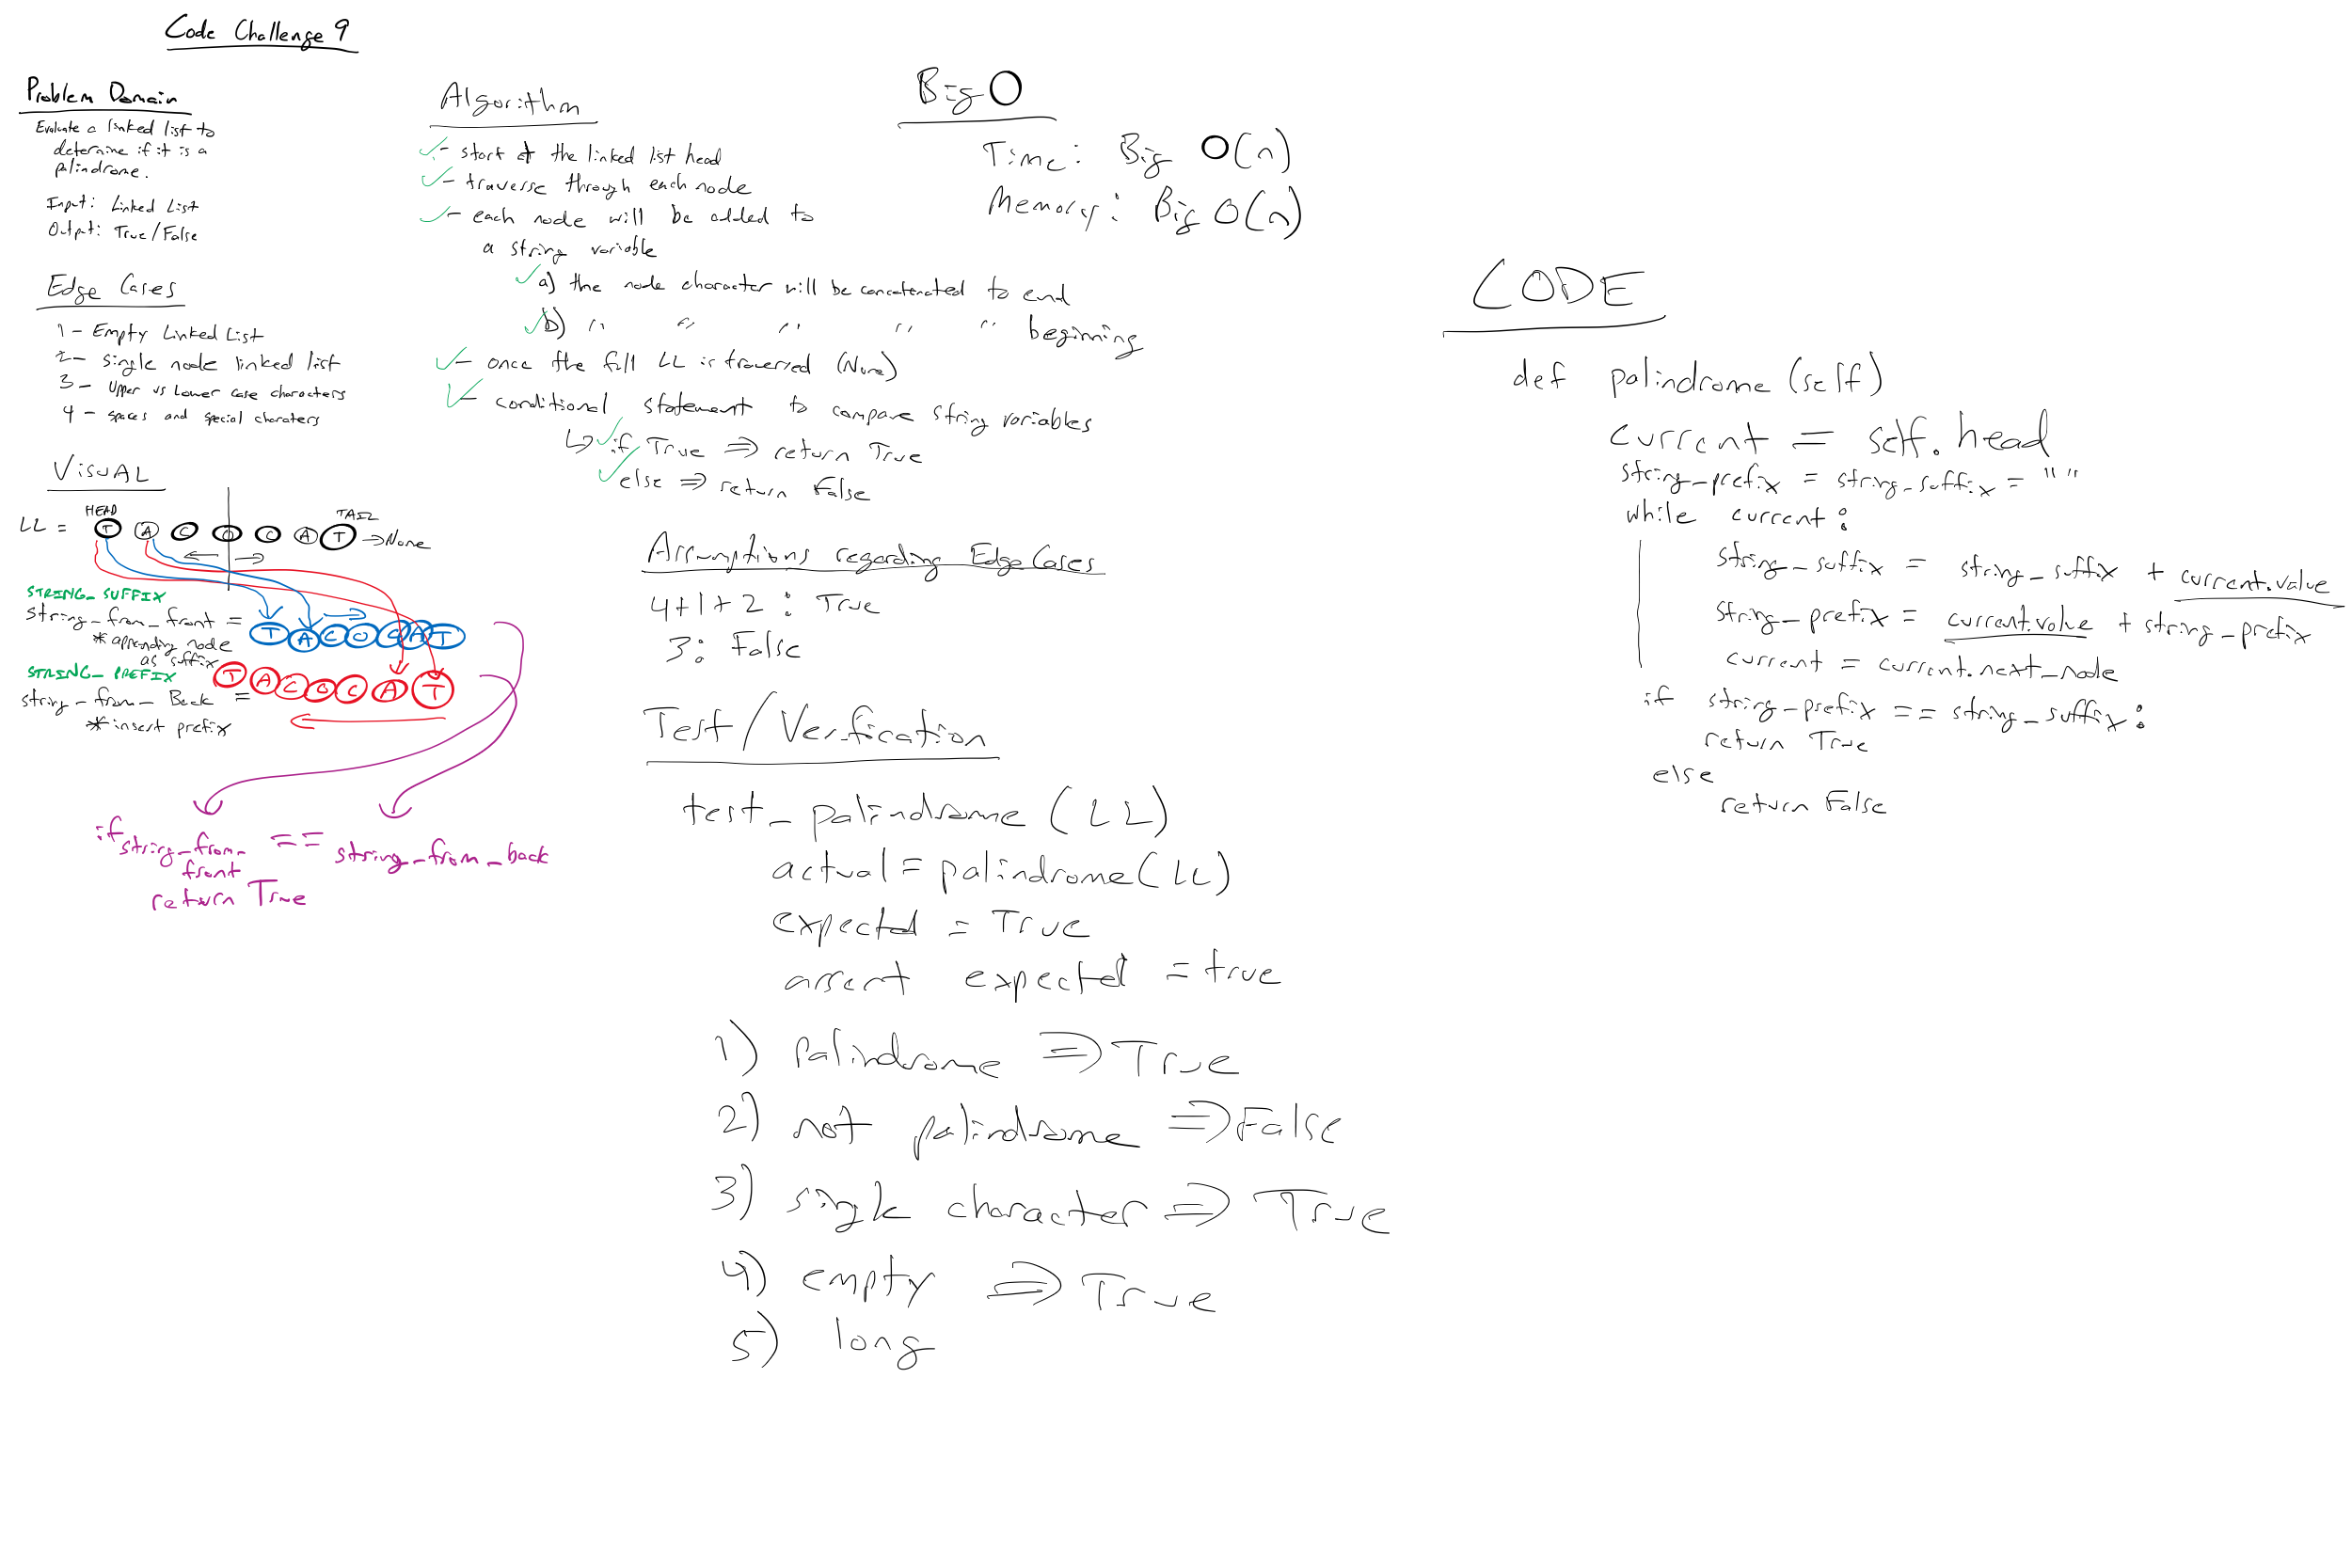 Code Challenge 9
Problem Domain
Evaluate a linked list to
determine if it is a
palindrome.
Input: Linked List
Output: True/False
Edge Cases
1 - Empty Linked List
2 - single node linked list
3 - Upper vs Lower case characters
4 - spaces and special charaters
VISUAL
HEAD
TAIL
LL = T A C O C A T → None
STRING_SUFFIX
string_from_front = T A C O C A T
* appending node
as suffix
STRING_PREFIX
string_from_Back = T A C O C A T
* insert prefix
if string_from_front == string_from_back
return True
Algorithm
✓- start at the linked list head
✓- traverse through each node
✓- each node will be added to
a string variable
✓ a) the node character will be concatenated to end
✓ b) " " " " " begining
✓- once the full LL is traversed (None)
✓- conditional statement to compare string variables
↳ ✓ if True ⇒ return True
✓ else ⇒ return False
Assumptions regarding Edge Cases
4+1+2 : True
3: False
Test/Verification
test_palindrome (LL)
actual = palindrome(LL)
expected = True
assert expected = true
1) palindrome ⇒ True
2) not palindrome ⇒ False
3) single character ⇒ True
4) empty ⇒ True
5) long
Big O
Time: Big O(n)
Memory: Big O(n)
CODE
def palindrome (self)
current = self.head
string_prefix = string_suffix = ""
while current:
string_suffix = string_suffix + current.value
string_prefix = current.value + string_prefix
current = current.next_node
if string_prefix == string_suffix:
return True
else
return False